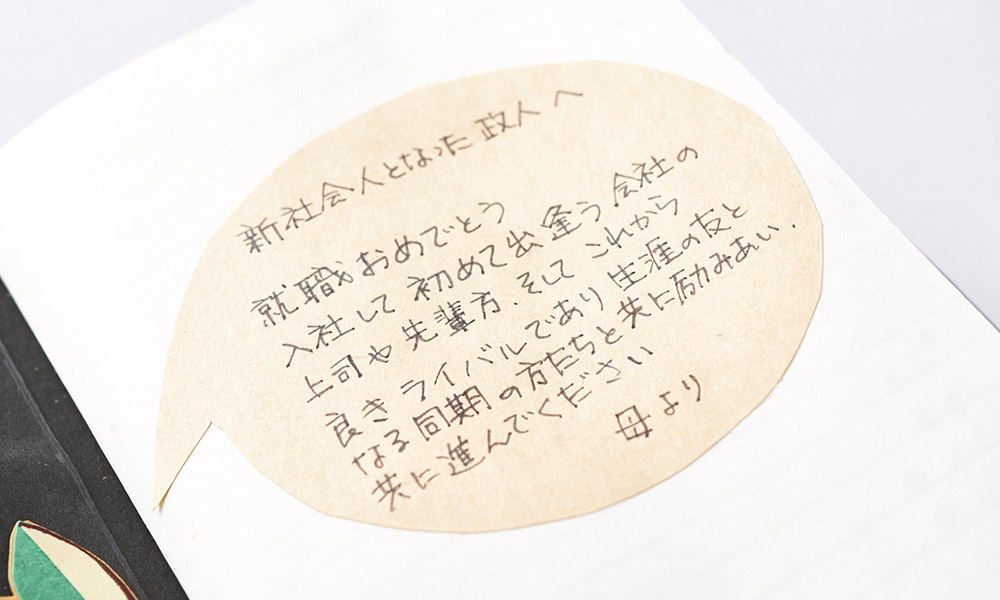 新社会人となった政人へ
就職おめでとう
入社して初めて出逢う会社の
上司や先輩方、そしてこれから
良きライバルであり生涯の友と
なる同期の方たちと共に励みあい、
共に進んでください
母より